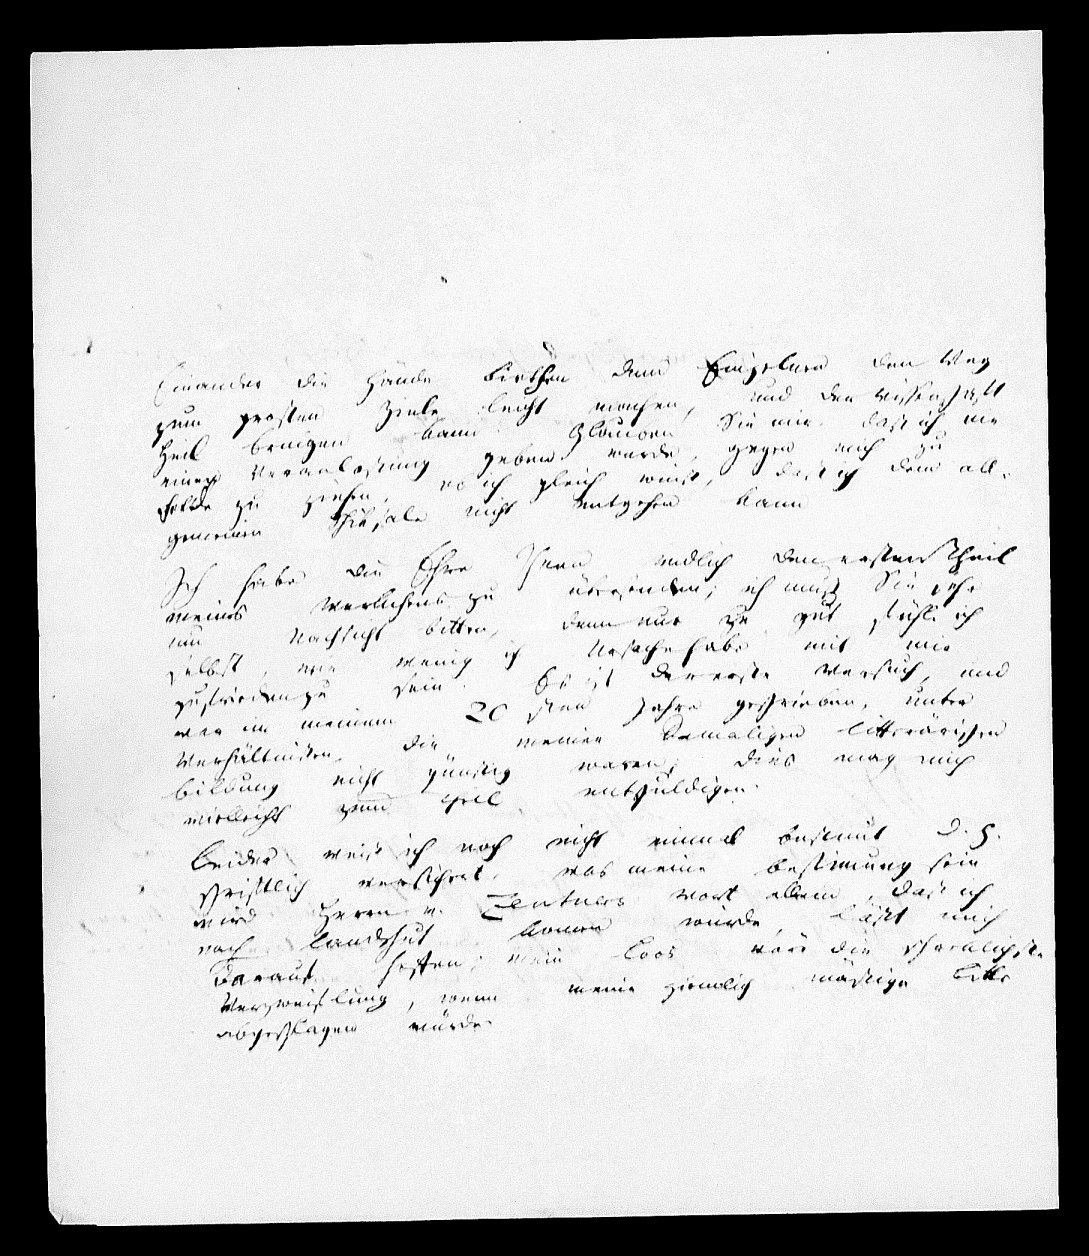 Einander die Hände biethen dem Einzelnen den Weg
zum grossen Ziele leicht machen, und der Wissenschaft
Heil bringen kann. Glauben Sie mir, dass ich nie
einige Veranlassung geben werde, gegen mich zu
Felde zu ziehen, ob ich gleich weiss, dass ich dem all-
gemeinen Schiksale nicht entgehen kann
Ich habe die Ehre Ihnen endlich den ersten Theil
meines Werkchens zu übersenden; ich muss Sie sehr
um Nachsicht bitten, denn nur zu gut fühle ich
selbst, wie wenig ich Ursache habe mit mir
zufrieden zu sein. Es ist der erste Versuch, und
war in meinem 20sten Jahre geschrieben, unter
Verhältnissen, die meiner damaligen litterärischen
bildung nicht günstig waren; dies mag mich
vielleicht zum Theil entschuldigen.
Leider weiss ich noch nicht einmal bestimt d. h.
schriftlich versichert, was meine bestimung sein
wird Herrn v. Zentners Wort allein, dass ich
nach Landshut komen würde, lässt mich
darauf hoffen; mein Loos wäre die schreklichste
Verzweiflung, wenn meine ziemlich mässige bitte
abgeschlagen würde.